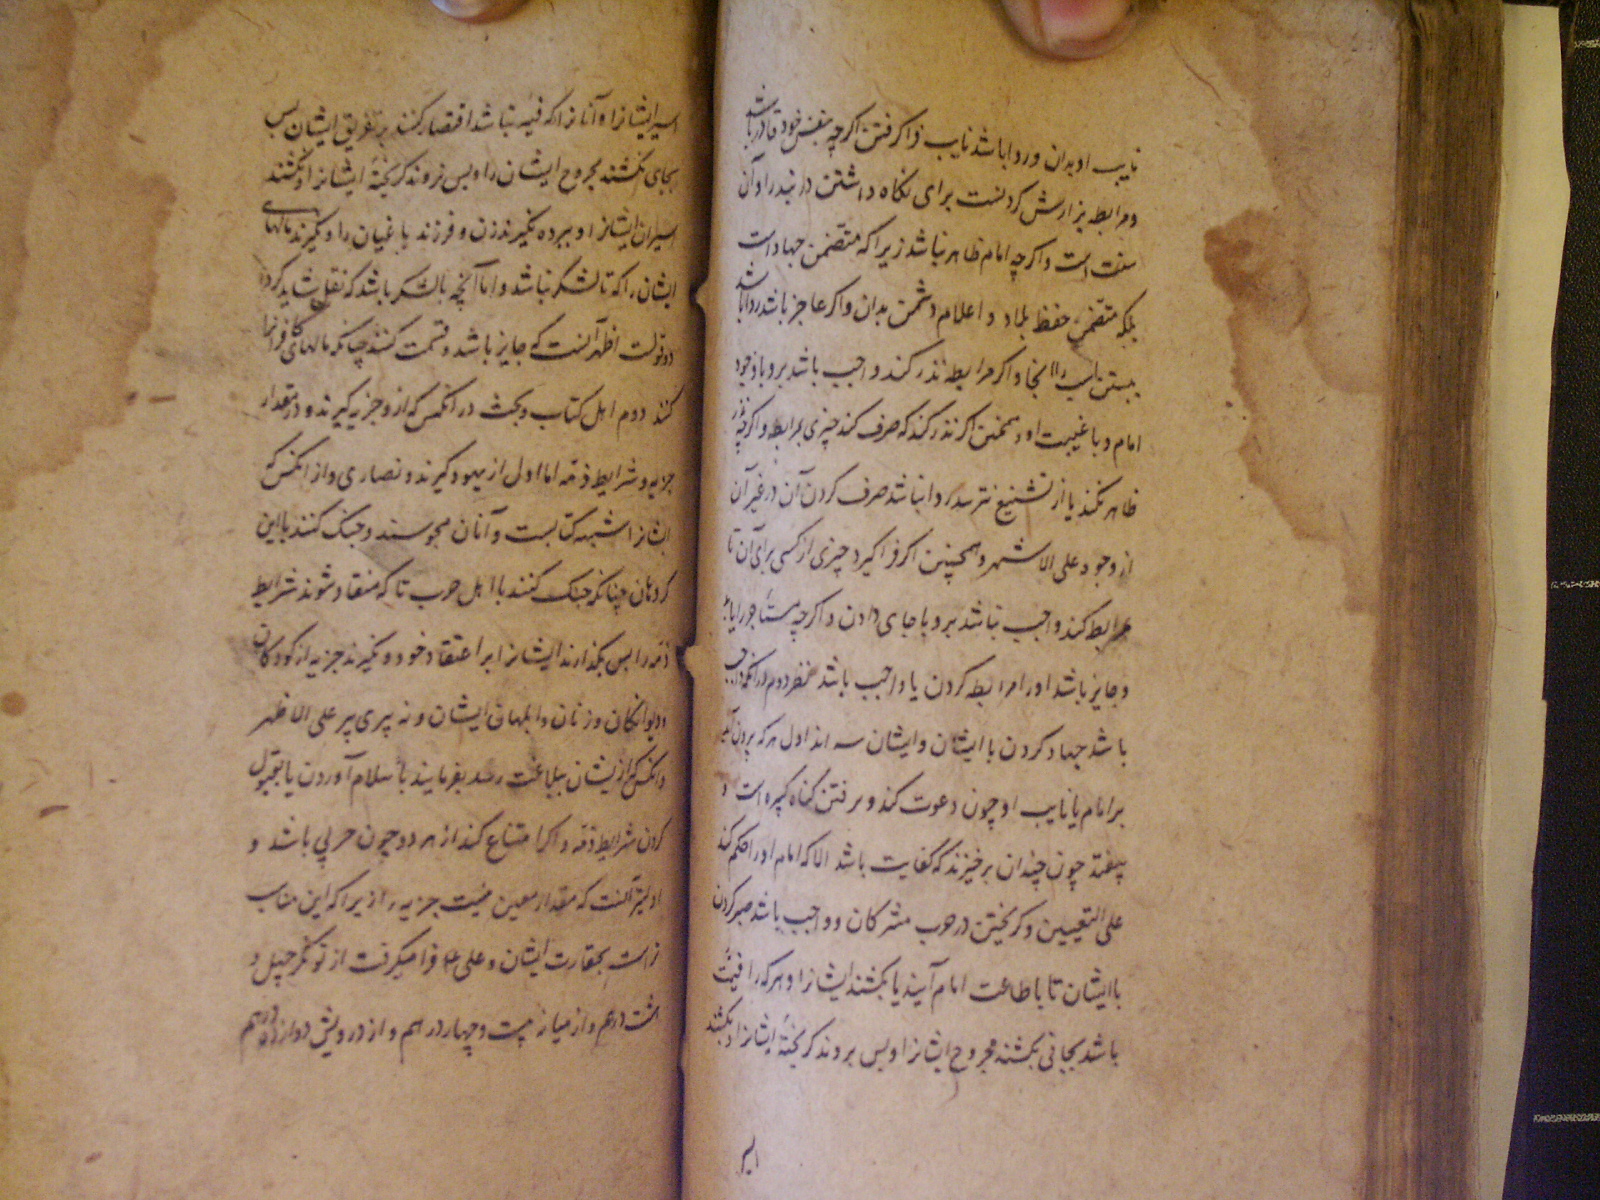 نایب او بدان و روا باشد نایب فرا کرفتن اکرچه بنفس خود قادر باشد
و مرابطه بزارش کردنست برای نکاه داشتن در بندر او آن
سنت است و اکرچه امام ظاهر نباشد زیرا که متضمن جهاد است
بلکه متضمن حفظ بلاد و اعلام دشمن بدان و اکر عاجز باشد روا باشد
ببستن اسب را انجا و اکر مرابطه نذر کند واجب باشد برو با وجود
امام و با غیبت او و همچنین اکر نذر کند که صرف کند چیزی بمرابطه و اکرچه نذر
ظاهر نکند یا از تشنیع نترسد روا نباشد صرف کردن آن در غیر آن
از وجوه علی الاشهر و همچنین اکر فرا کیرد چیزی از کسی برای آن تا
مرابطه کند واجب نباشد برو با جای دادن و اکرچه مستاجر را یابد
و جایز باشد او را مرابطه کردن یا واجب باشد نظر دوم در انکه واجب
باشد جهاد کردن با ایشان و ایشان سه اند اول هر که بیرون آید
بر امام یا نایب او چون دعوت کند و نرفتن کناه کبیره است و
بیفتد چون چندان برخیزند که کفایت باشد الا که امام او را حکم کند
علی التعیین و کریختن در حرب مشرکان و واجب باشد صبر کردن
با ایشان تا با طاعت امام آیند یا بکشند ایشانرا و هر که را فئتی
باشد بجائی بکشند مجروح ایشانرا و پس بروند کریختهٔ ایشانرا و بکشند
اسیر
اسیر ایشانرا و آنانرا که فیه نباشد اقتصار کنند بر تفریق ایشان پس
بجای نکشند مجروح ایشان را و پس نروند کریختهٔ ایشانرا و نکشند
اسیران ایشانرا و ببرده نکیرند زن و فرزند باغیان را و نکیرند مالهای
ایشان را که تا لشکر نباشد و اما آنچه با لشکر باشد که نقل شاید کرد
دو قولست اظهر آنست که جایز باشد و قسمت کنند چنانکه مالهای کافرانرا
کنند دوم اهل کتاب و بحث در انکس که ازو جزیه کیرند و در مقدار
جزیه و شرایط ذمه اما اول از یهود کیرند و نصاری و از انکس که
ایشانرا شبهه کتابست و آنان مجوسند و جنک کنند با این
کروهان چنانکه جنک کنند با اهل حرب تا که منقاد شوند شرایط
ذمه را پس بکذارند ایشانرا بر اعتقاد خود و نکیرند جزیه از کودکان
و دیوانکان و زنان و ابلهان ایشان و نه پری پیر علی الاظهر
و انکس که از یشان ببلاغت رسد بفرمایند باسلام آوردن یا بقبول
کردن شرایط ذمه و اکر امتناع کند از هر دو چون حربی باشد و
اولیتر آنست که مقدار معین نیست جزیه را زیرا که این مناسب
تر است بحقارت ایشان و علی ع فرا میکرفت از توانکر چهل و
هشت درهم و از میانه بیست و چهار درهم و از درویش دوازده درهم